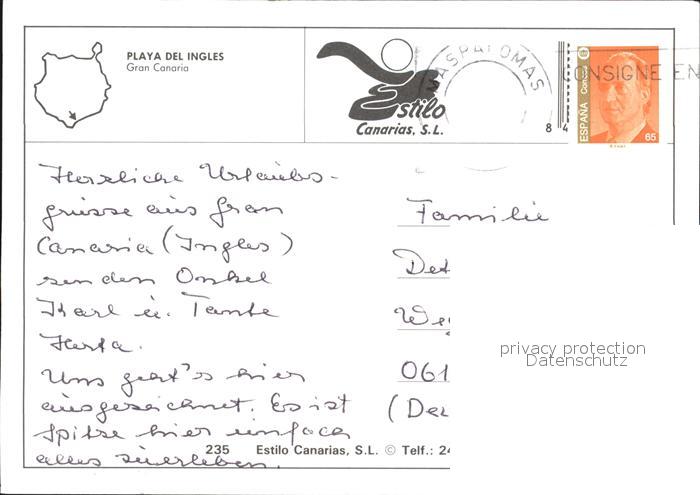 PLAYA DEL INGLES
Gran Canaria
Estilo
Canarias, S.L.
MASPALOMAS
CONSIGNE EN
ESPAÑA Correos
65
8 4
Herzliche Urlaubs-
grüsse aus Gran
Canaria (Ingles)
senden Onkel
Karl u. Tante
Herta.
Uns geht's hier
ausgezeichnet. Es ist
Spitze hier einfach
alles zu erleben.
Familie
Det
We
061
(Deu
privacy protection
Datenschutz
235 Estilo Canarias, S.L. © Telf.: 24